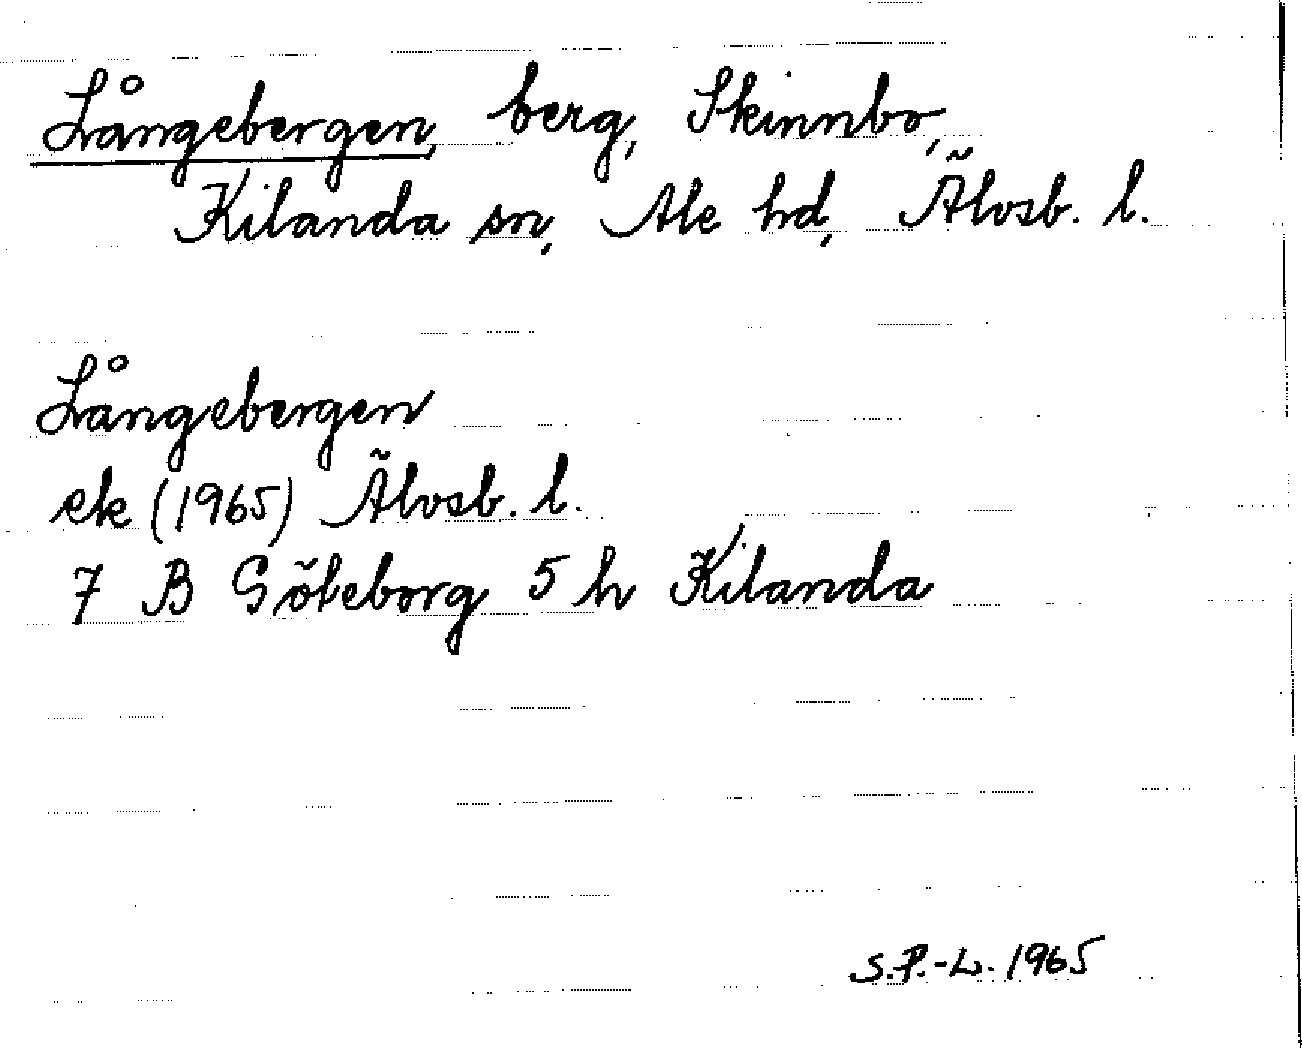 Långebergen, berg, Skinnbo,
Kilanda sn, Ale hd, Älvsb. l.
Långebergen
ek (1965) Älvsb. l.
7 B Göteborg 5 h Kilanda
S.P.-L. 1965